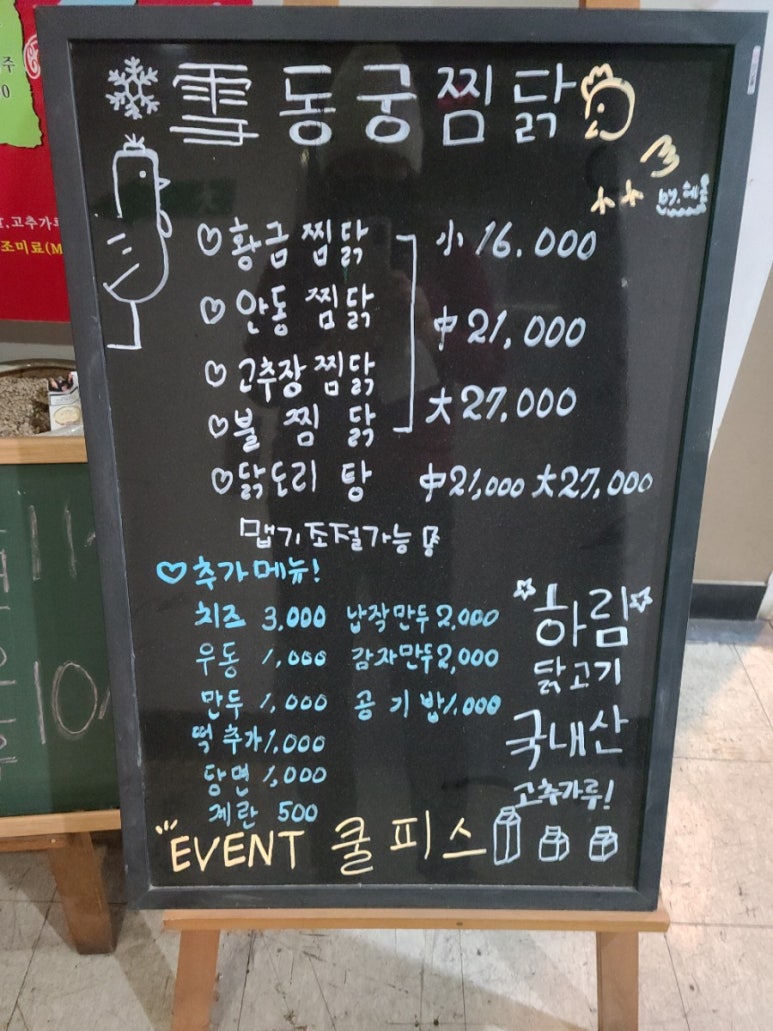 雪동궁찜닭
by.혜
♡황금찜닭 小 16.000
♡안동 찜닭 中 21,000
♡고추장찜닭 大 27,000
♡불 찜 닭
♡닭도리 탕 中21,000 大27,000
맵기조절가능
♡추가메뉴!
치즈 3,000 납작만두 2,000
우동 1,000 감자만두 2,000
만두 1,000 공 기 밥 1,000
떡 추가 1,000
당면 1,000
계란 500
하림
닭고기
국내산
고추가루!
EVENT 쿨피스
주
0
,고추가루
조미료(M
10